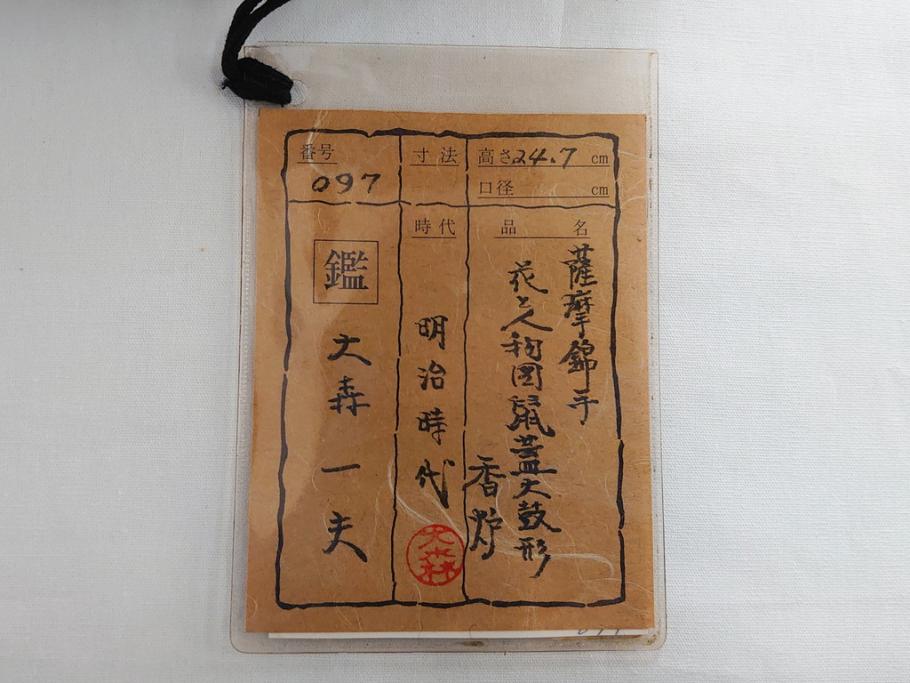 番号
097
寸法
高さ24.7 cm
口径 cm
品名
薩摩錦手
花と人物図鼠蓋太鼓形
香炉
時代
明治時代
鑑
大森一夫
大森